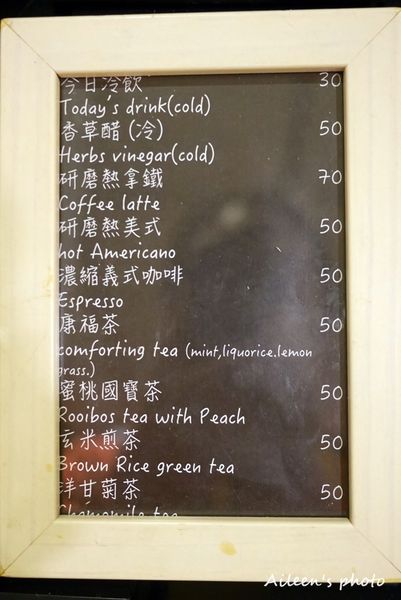 今日冷飲 30
Today's drink(cold)
香草醋 (冷) 50
Herbs vinegar(cold)
研磨熱拿鐵 70
Coffee latte
研磨熱美式 50
hot Americano
濃縮義式咖啡 50
Espresso
康福茶 50
comforting tea (mint,liquorice.lemon
grass.)
蜜桃國寶茶 50
Rooibos tea with Peach
玄米煎茶 50
Brown Rice green tea
洋甘菊茶 50
Chamomile tea
Aileen's photo